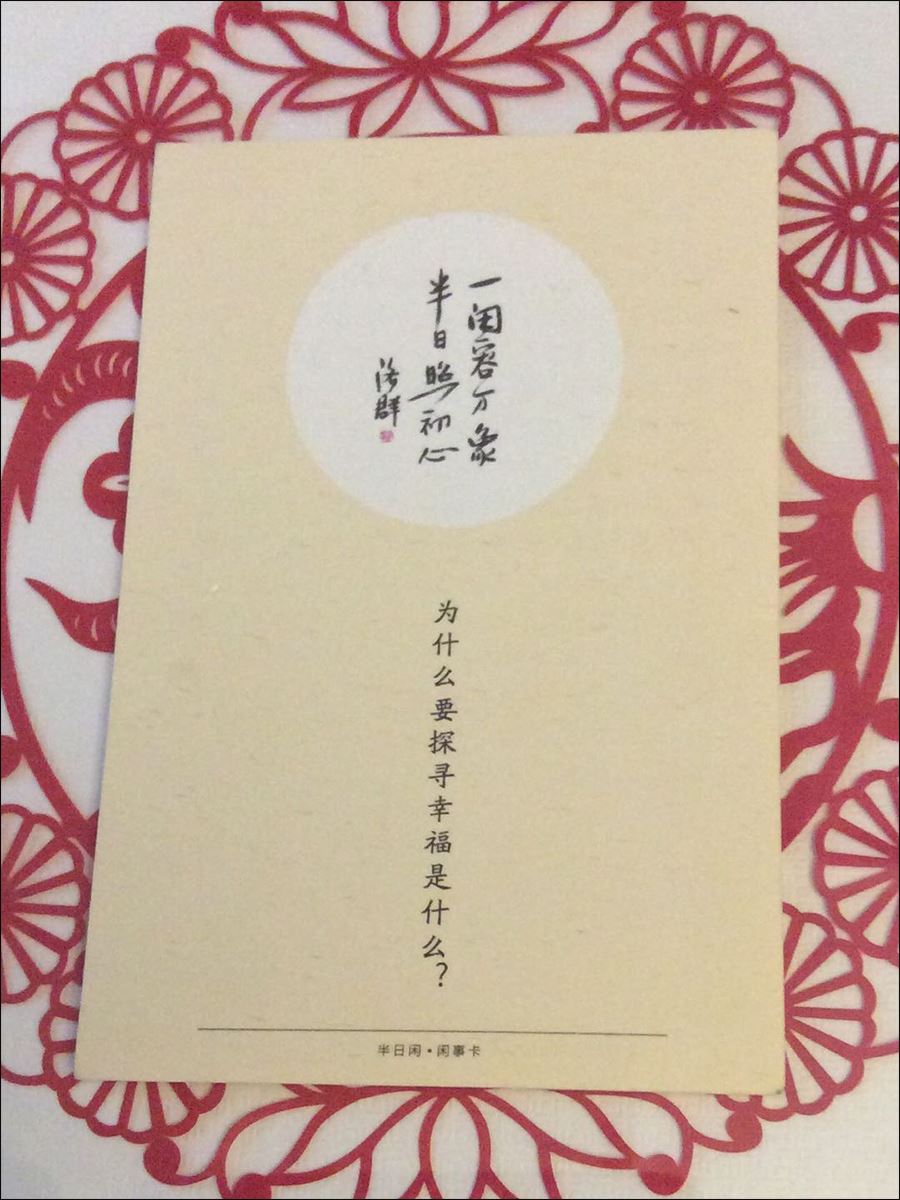 一闲容万象
半日照初心
洛群
为什么要探寻幸福是什么?
半日闲·闲事卡